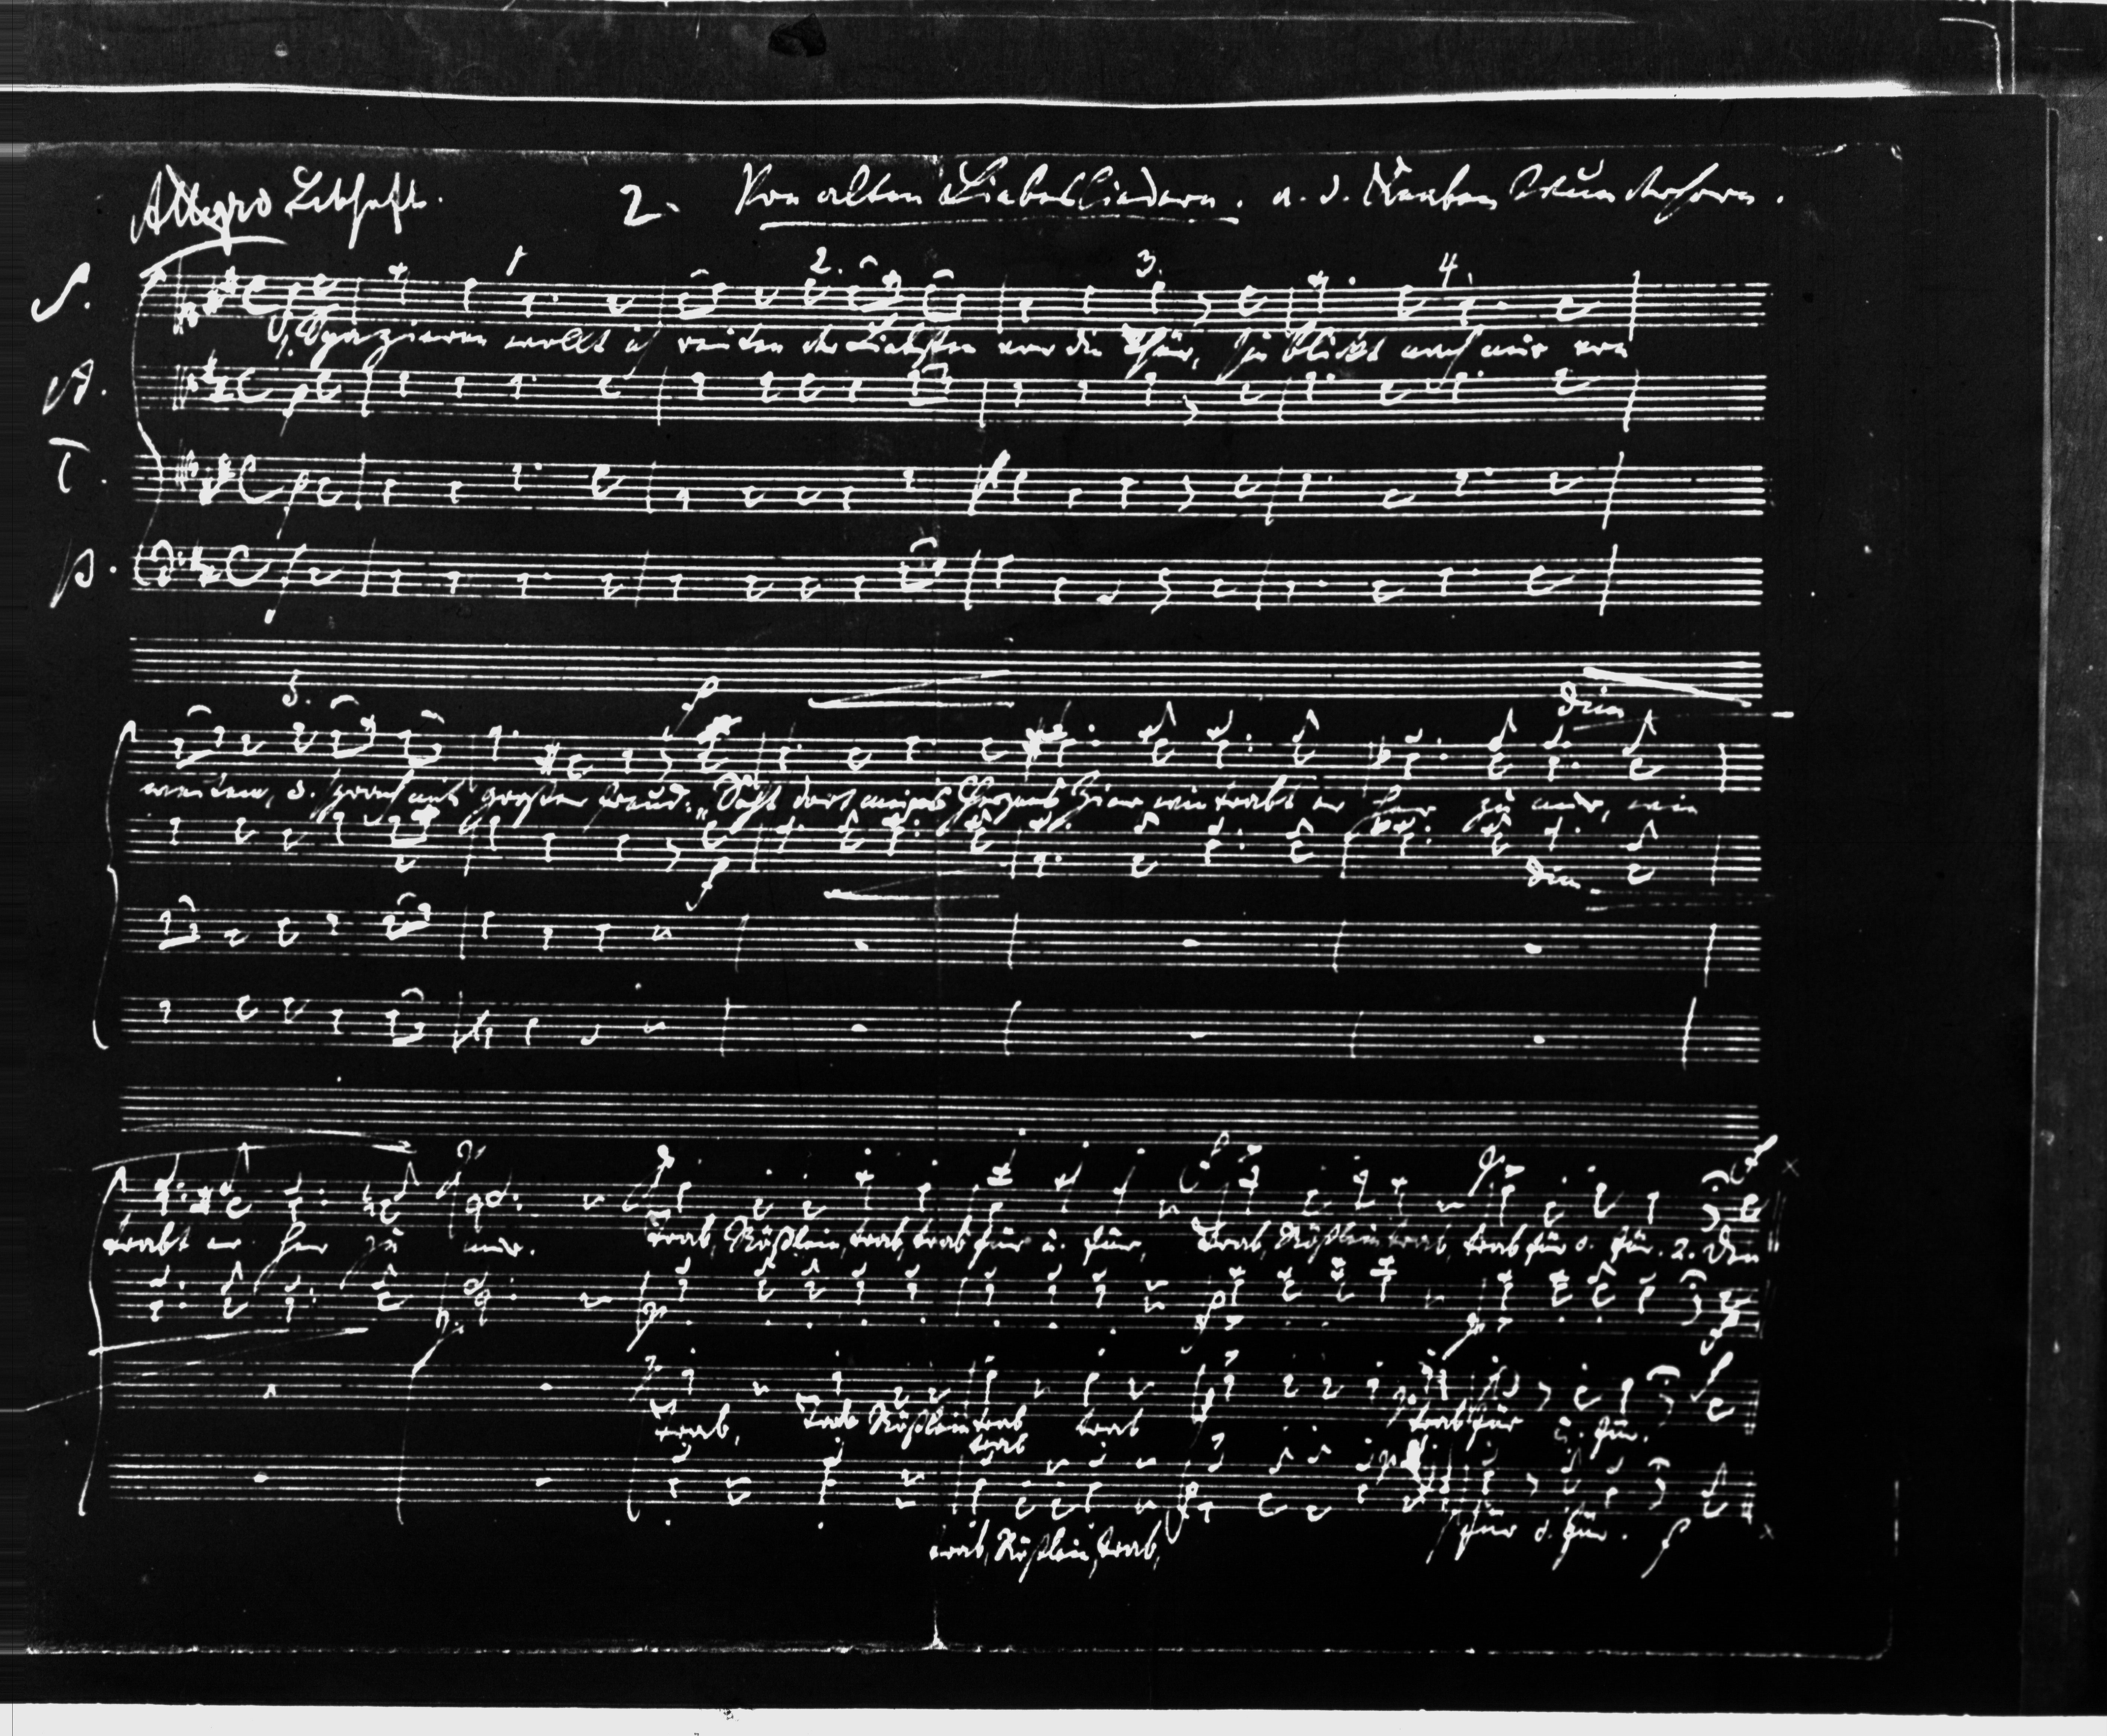 Allegro Lebhaft. 2. Von alten Liebesliedern. a. d. Knaben Wunderhorn.
1 2. 3. 4.
S.
1. Spazieren wollt ich reiten der Liebsten vor die Thür, sie blickt nach mir von
A.
T.
B.
5.
f
dim
weiten, u. sprach mit großer Freud: „Seht dort meines Herzens Zier wie trabt er her zu mir, wie
f
dim
p f p f
trabt er her zu mir. Trab, Rößlein, trab, trab für u. für, Trab, Rößlein trab, trab für u. für. 2. Den
p p f p f
Trab, Trab Rößlein trab trab trab für u. für.
trab
trab, Rößlein, trab, für u. für. f